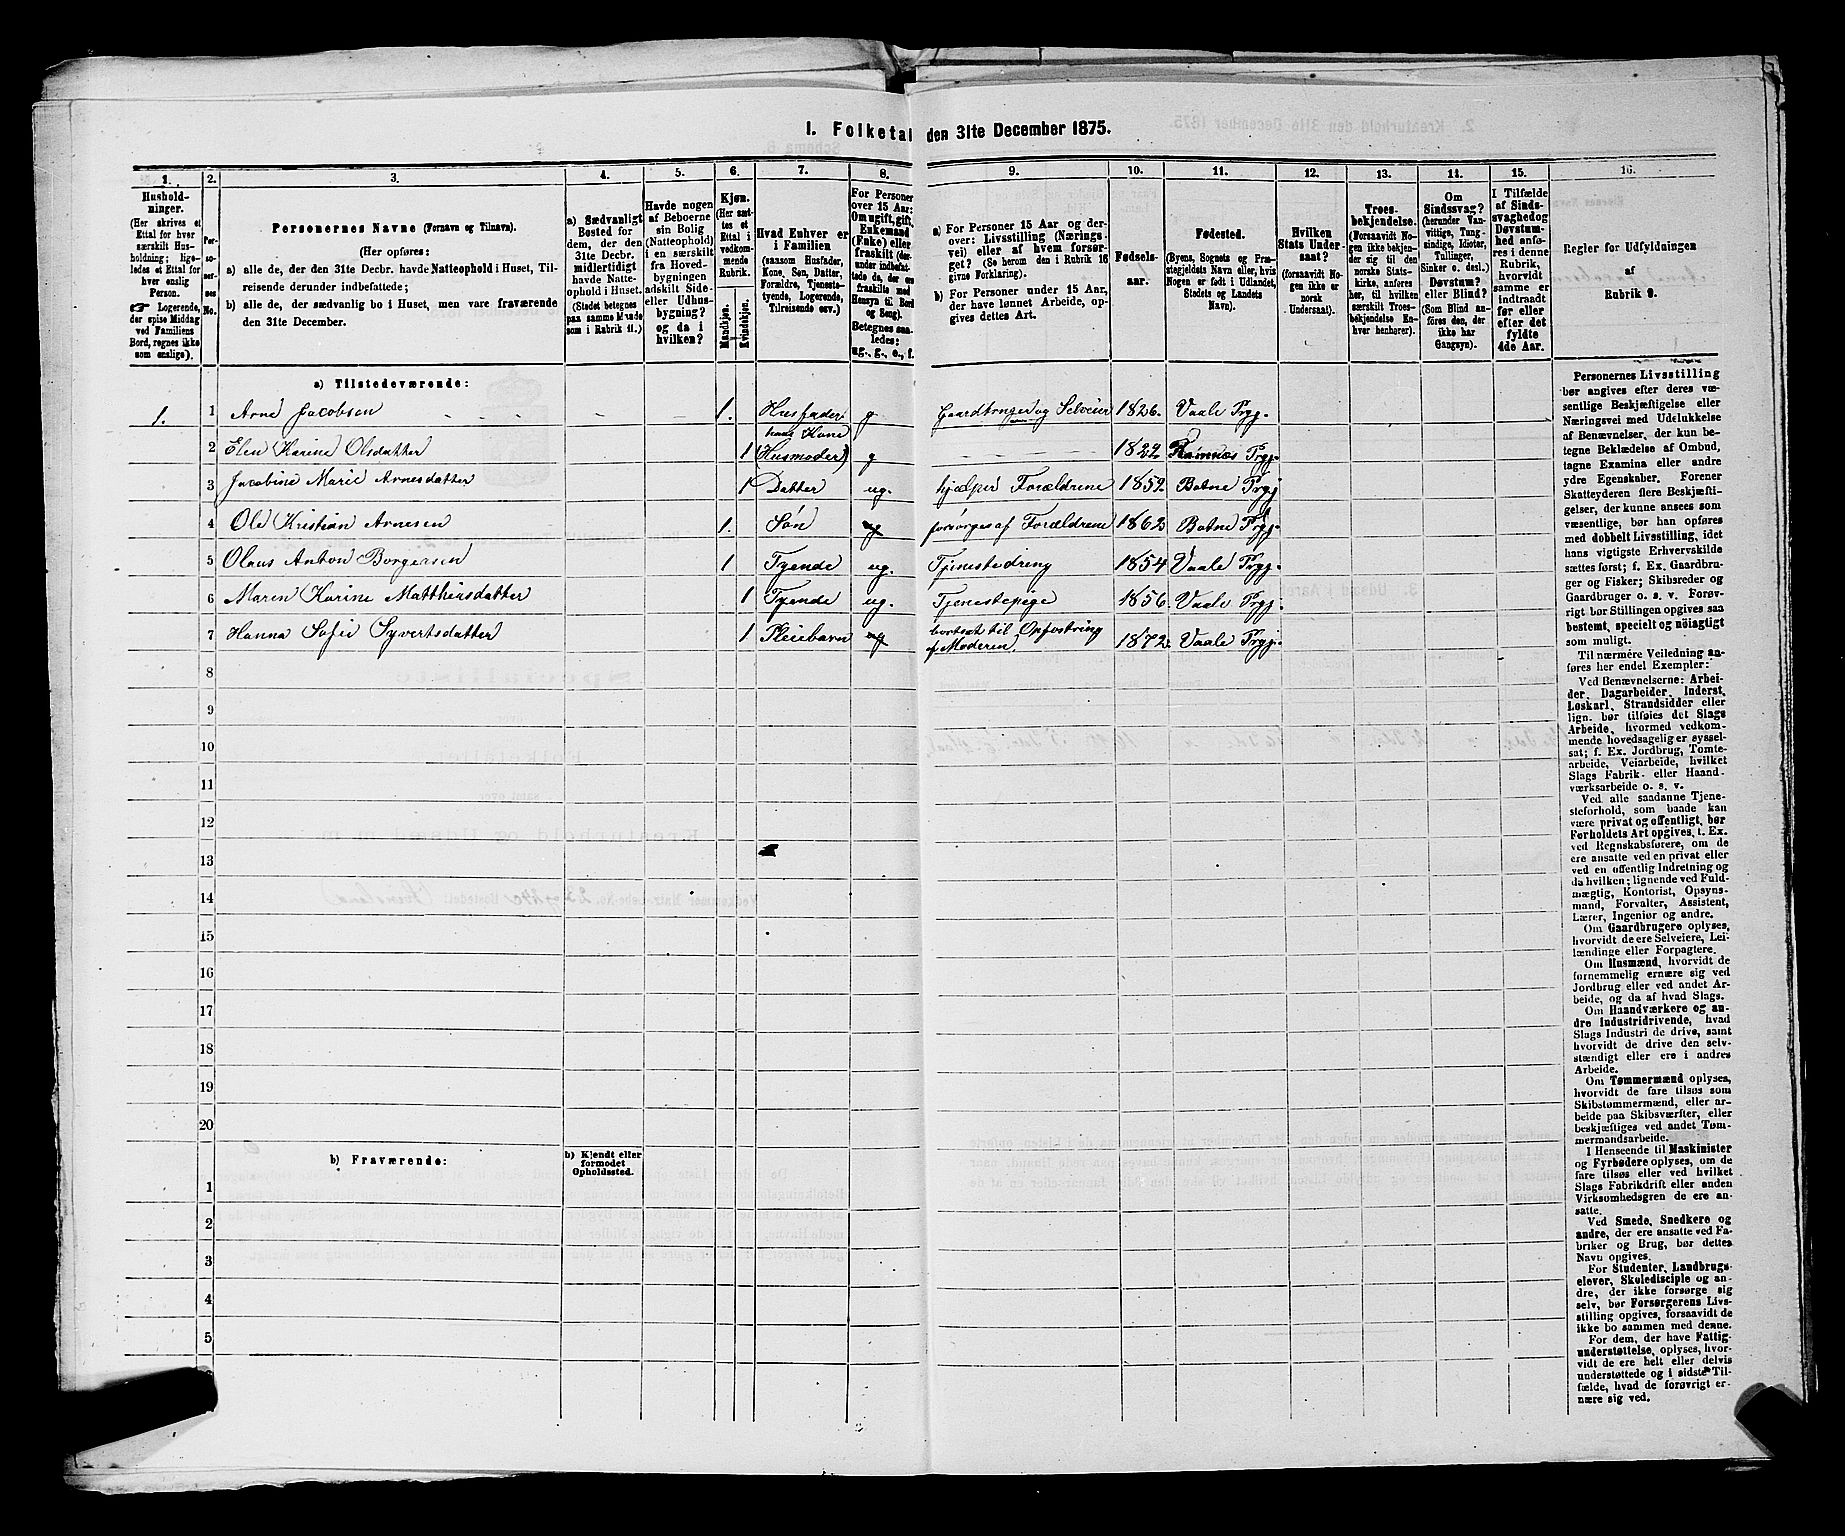 I. Folketal den 31te December 1875.
1. 2. 3. 4. 5. 6. 7. 8. 9. 10. 11. 12. 13. 14. 15. 16.
Husholdninger.
(Her skrives et
Ettal for hver
særskilt Husholdning; ligeledes
et Ettal for
hver enslig
Person.
☛ Logerende,
der spise Middag
ved Familiens
Bord, regnes ikke
som enslige).
Personernes No.
Personernes Navne (Fornavn og Tilnavn).
(Her opføres:
a) alle de, der den 31te Decbr. havde Natteophold i Huset, Tilreisende
derunder indbefattede;
b) alle de, der sædvanlig bo i Huset, men vare fraværende
den 31te December.
a) Sædvanligt
Bosted for
dem, der den
31te Decbr.
midlertidigt
havde Natteophold
i Huset.
(Stedet betegnes
paa samme Maade
som i Rubrik 11.)
Havde nogen
af Beboerne
sin Bolig
(Natteophold)
i en særskilt
fra Hovedbygningen
adskilt Side- eller
Udhusbygning?
og da i
hvilken?
Kjøn.
(Her sættes
et
Ettal i
vedkommende
Rubrik.
Mandkjøn.
Kvindekjøn.
Hvad Enhver er
i Familien
(saasom Husfader,
Kone, Søn, Datter,
Forældre, Tjenestetyende,
Logerende,
Tilreisende osv.)
For Personer
over 15 Aar:
Om ugift, gift,
Enkemand
(Enke) eller
fraskilt (derunder
indbefattede
de, der ere
fraskilte med
Hensyn til Bord
og Seng).
Betegnes saaledes:
ug., g., e., f.
a) For Personer 15 Aar og derover:
Livsstilling (Næringsvei)
eller af hvem forsørget?
(Se herom den i Rubrik 16
givne Forklaring).
b) For Personer under 15 Aar,
der have lønnet Arbeide, opgives
dettes Art.
Fødselsaar.
Fødested.
(Byens, Sognets og Præstegjeldets
Navn eller, hvis
Nogen er født i Udlandet,
Stedets og Landets
Navn).
Hvilken
Stats Undersaat?
(forsaavidt Nogen
ikke er
norsk
Undersaat).
Troesbekjendelse.
(Forsaavidt Nogen
ikke bekjender
sig til den
norske Statskirke,
anføres
her, til hvilken
særskilt Troesbekjendelse
Enhver
henhører).
Om
Sindssvag?
(herunder Vanvittige,
Tungsindige,
Idioter,
Tullinger,
Sinker o. desl.)
Døvstum?
eller Blind?
(Som Blind anføres
den, der
ikke har
Gangsyn).
I Tilfælde
af Sindssvaghed
og
Døvstumhed
anføres
i denne
Rubrik,
hvorvidt
samme er
indtraadt
før eller
efter det
fyldte
4de Aar.
Regler for Udfyldningen
af
Rubrik 9.
a) Tilstedeværende:
1. 1 Arne Jacobsen 1. Husfader g Gaardbruger og Selveier 1826. Vaale Prgj.
2 Elen Karine Olsdatter 1 hans Kone (Husmoder) g 1822 Ramnæs Prgj.
3 Jacobine Marie Arnesdatter 1 Datter ug. hjælper Forældrene 1852. Botne Prgj
4 Ole Kristian Arnesen 1. Søn ug forsørges af Forældrene 1862 Botne Prgj.
5 Olaus Anton Borgersen 1 Tyende ug. Tjenestedreng 1854. Vaale Prgj.
6 Maren Karine Matthisdatter 1 Tyende ug. Tjenestepige 1856. Vaale Prgj.
7 Hanna Sofie Syvertsdatter 1 Pleiebarn ug bortsat til Opfostring af Moderen 1872. Vaale Prgj.
8
9
10
11
12
13
14
15
16
17
18
19
20
b) Fraværende:
b) Kjendt eller
formodet
Opholdssted.
1
2
3
4
5
Personernes Livsstilling
bør angives efter deres væsentlige
Beskjæftigelse eller
Næringsvei med Udelukkelse
af Benævnelser, der kun betegne
Beklædelse af Ombud,
tagne Examina eller andre
ydre Egenskaber. Forener
Skatteyderen flere Beskjæftigelser,
der kunne ansees som
væsentlige, bør han opføres
med dobbelt Livsstilling, idet
hans vigtigste Erhvervskilde
sættes først; f. Ex. Gaardbruger
og Fisker; Skibsreder og
Gaardbruger o. s. v. Forøvrigt
bør Stillingen opgives saa
bestemt, specielt og nøiagtigt
som muligt.
Til nærmere Veiledning anføres
her endel Exempler:
Ved Benævnelserne: Arbeider,
Dagarbeider, Inderst,
Løskarl, Strandsidder eller
lign. bør tilføies det Slags
Arbeide, hvormed vedkommende
hovedsagelig er sysselsat;
f. Ex. Jordbrug, Tomtearbeide,
Veiarbeide, hvilket
Slags Fabrik- eller Haandværksarbeide
o. s. v.
Ved alle saadanne Tjenesteforhold,
som baade kan
være privat og offentligt, bør
Forholdets Art opgives, t. Ex.
ved Regnskabsførere, om de
ere ansatte ved en privat eller
ved en offentlig Indretning og
da hvilken; lignende ved Fuldmægtig,
Kontorist, Opsynsmand,
Forvalter, Assistent,
Lærer, Ingeniør og andre.
Om Gaardbrugere oplyses,
hvorvidt de ere Selveiere, Leilændinge
eller Forpagtere.
Om Husmænd, hvorvidt de
fornemmelig ernære sig ved
Jordbrug eller ved andet Arbeide,
og da af hvad Slags.
Om Haandværkere og andre
Industridrivende, hvad
Slags Industri de drive, samt
hvorvidt de drive den selvstændigt
eller ere i andres
Arbeide.
Om Tømmermænd oplyses,
hvorvidt de fare tilsøs som
Skibstømmermænd, eller arbeide
paa Skibsværfter, eller
beskjæftiges ved andet Tømmermandsarbeide.
I Henseende til Maskinister
og Fyrbødere oplyses, om de
fare tilsøs eller ved hvilket
Slags Fabrikdrift eller anden
Virksomhedsgren de ere ansatte.
Ved Smede, Snedkere og
andre, der ere ansatte ved Fabriker
og Brug, bør dettes
Navn opgives.
For Studenter, Landbrugselever,
Skoledisciple og andre,
der ikke forsørge sig
selv, bør Forsørgerens Livsstilling
opgives, forsaavidt de
ikke bo sammen med denne.
For dem, der have Fattigunderstøttelse,
oplyses, hvorvidt
de ere helt eller delvis
understøttede og i sidste Tilfælde,
hvad de forøvrigt ernære
sig ved.